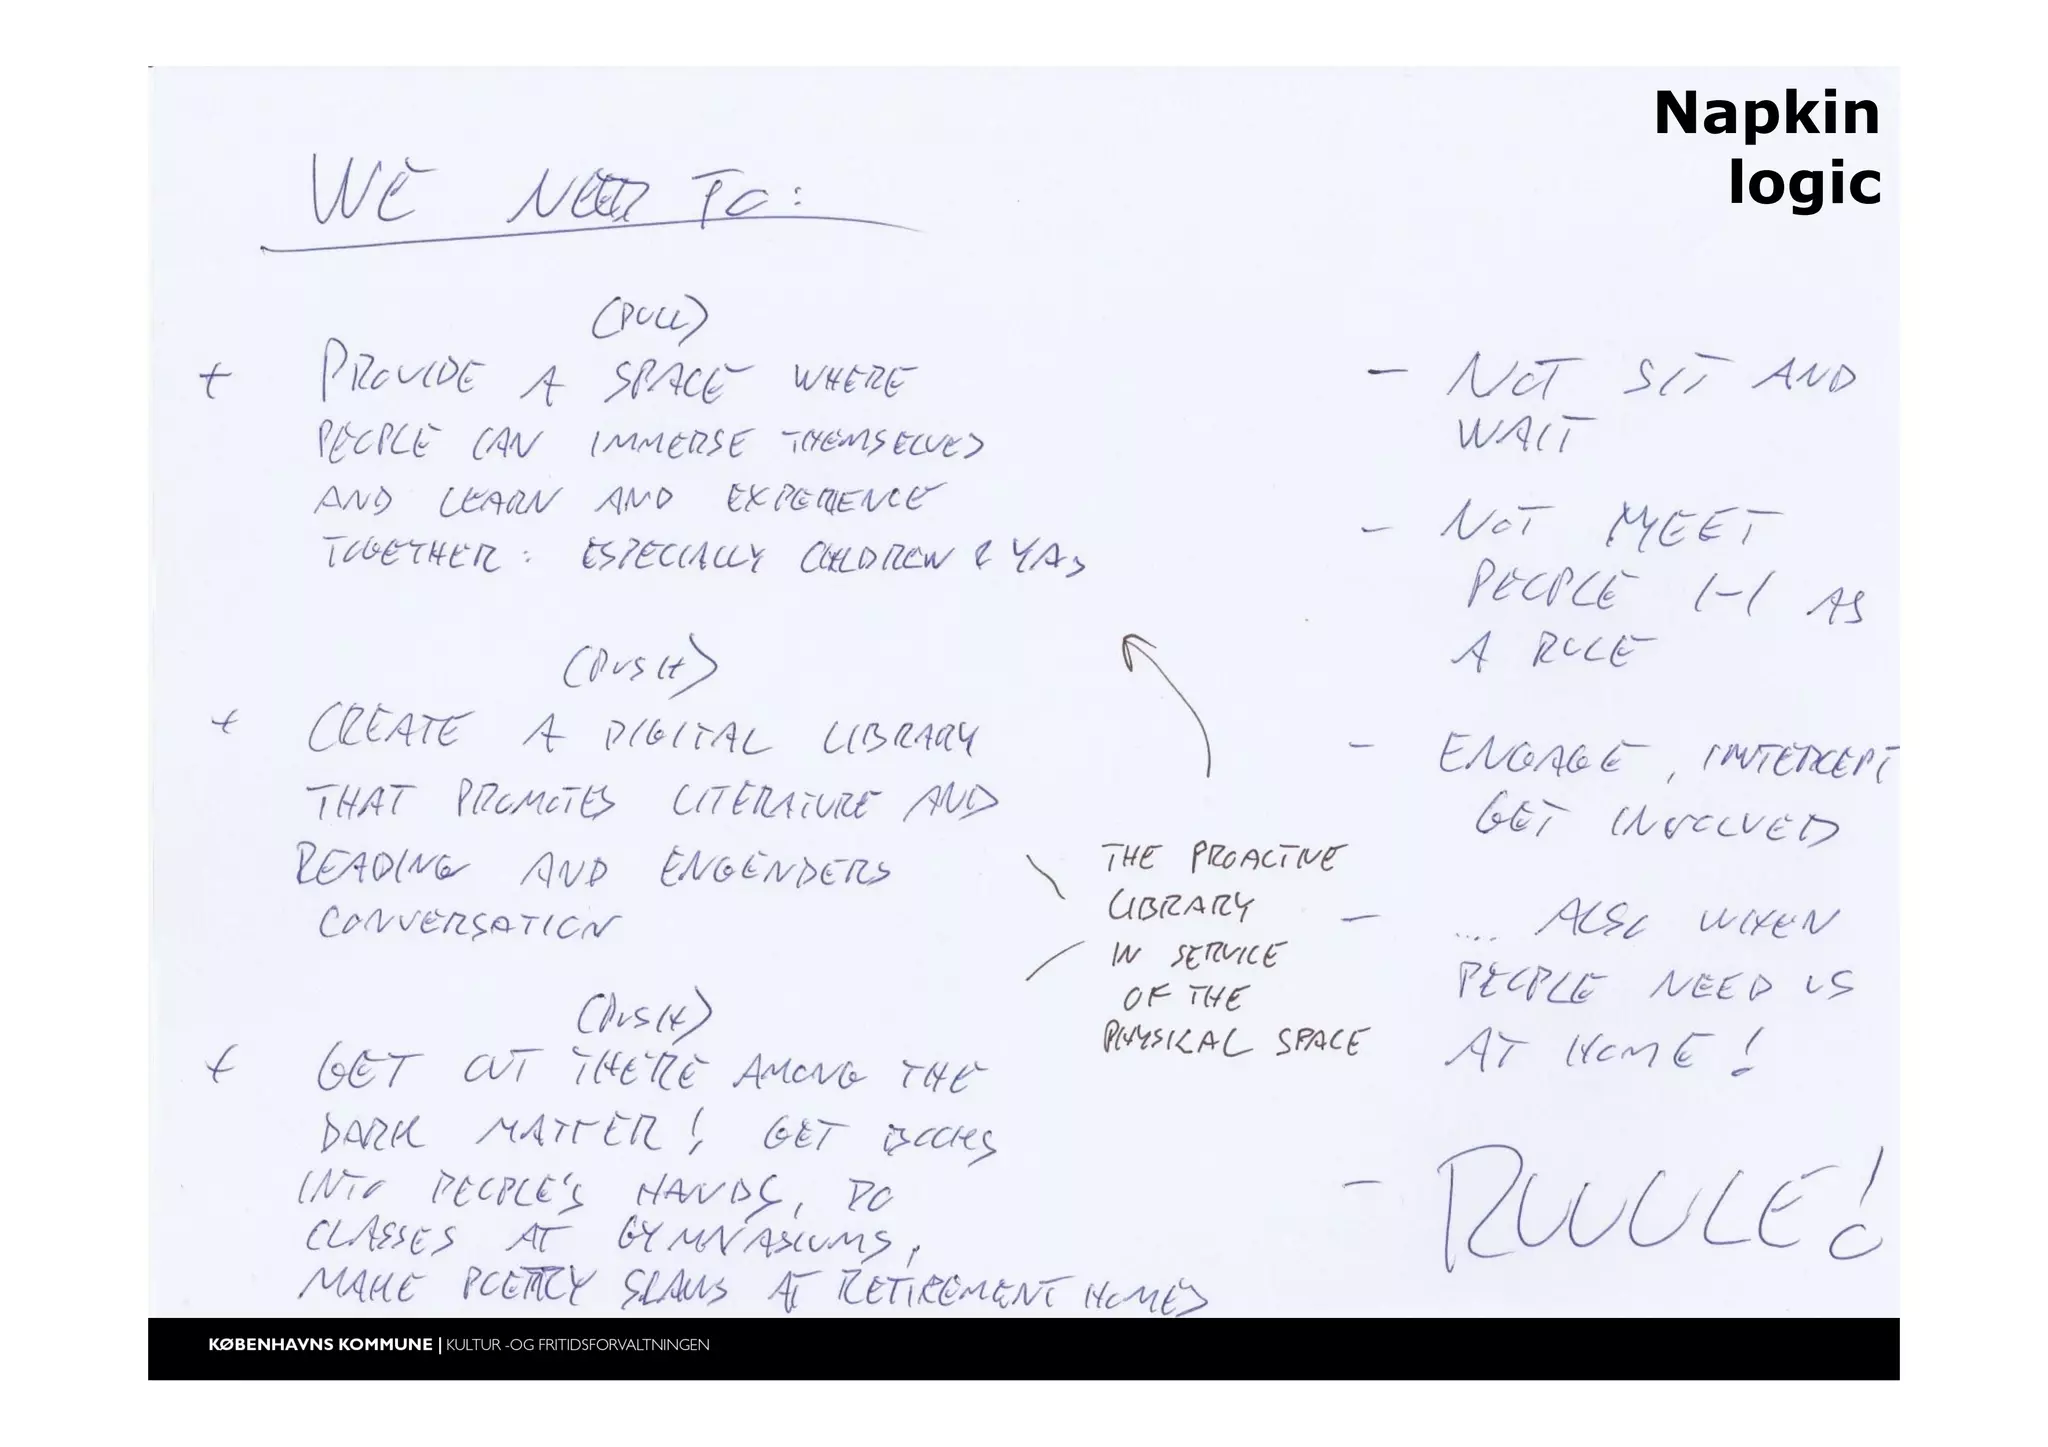 Napkin
logic
WE NEED TO:
(PULL)
+ PROVIDE A SPACE WHERE
PEOPLE CAN IMMERSE THEMSELVES
AND LEARN AND EXPERIENCE
TOGETHER: ESPECIALLY CHILDREN & YAs
(PUSH)
+ CREATE A DIGITAL LIBRARY
THAT PROMOTES LITERATURE AND
READING AND ENGENDERS
CONVERSATION
(PUSH)
+ GET OUT THERE AMONG THE
DARK MATTER! GET BOOKS
INTO PEOPLE'S HANDS, DO
CLASSES AT GYMNASIUMS,
MAKE POETRY SLAMS AT RETIREMENT HOMES
THE PROACTIVE
LIBRARY
IN SERVICE
OF THE
PHYSICAL SPACE
- NOT SIT AND
WAIT
- NOT MEET
PEOPLE 1-1 AS
A RULE
- ENGAGE, INTERCEPT
GET INVOLVED
- .... ALSO WHEN
PEOPLE NEED US
AT HOME!
- RUUULE!
KØBENHAVNS KOMMUNE | KULTUR -OG FRITIDSFORVALTNINGEN